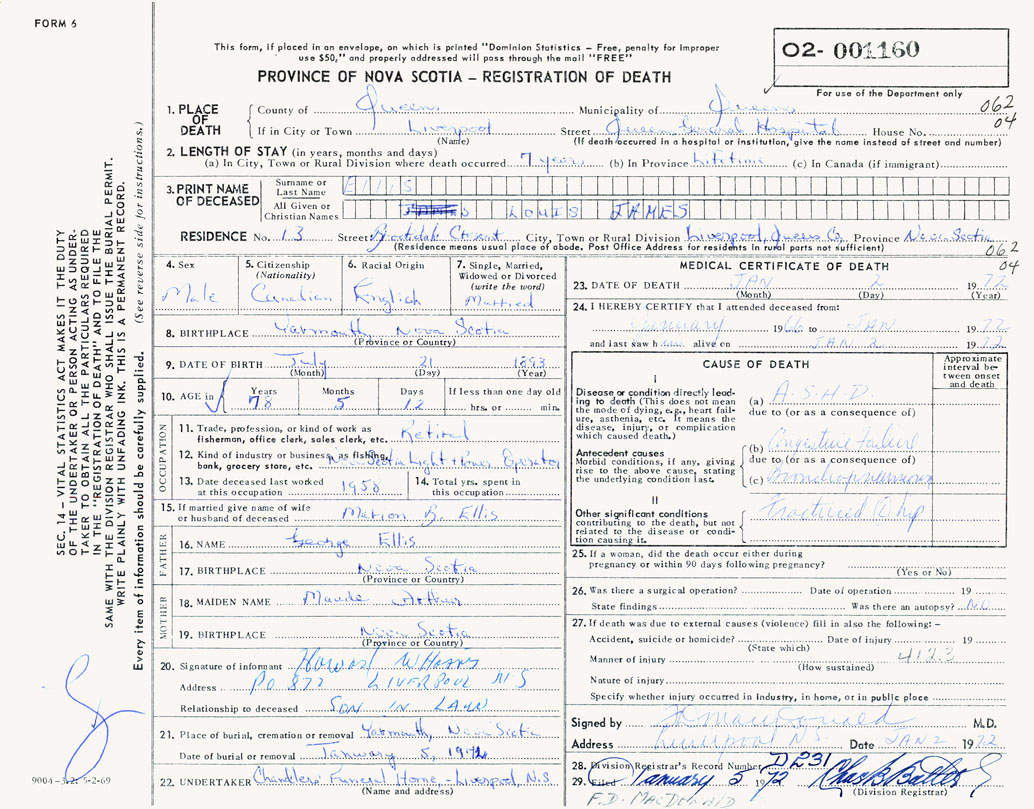 FORM 6
This form, if placed in an envelope, on which is printed "Dominion Statistics – Free, penalty for improper
use $50," and properly addressed will pass through the mail "FREE"
PROVINCE OF NOVA SCOTIA – REGISTRATION OF DEATH
02- 001160
For use of the Department only
062
04
1. PLACE OF DEATH
County of Queens Municipality of Queens
If in City or Town Liverpool Street Queens General Hospital House No.
(Name) (If death occurred in a hospital or institution, give the name instead of street and number)
2. LENGTH OF STAY (in years, months and days)
(a) In City, Town or Rural Division where death occurred 7 years (b) In Province Lifetime (c) In Canada (if immigrant)
3. PRINT NAME OF DECEASED
Surname or Last Name ELLIS
All Given or Christian Names LOUIS JAMES
RESIDENCE No. 13 Street Brookdale Crescent City, Town or Rural Division Liverpool, Queens Co. Province Nova Scotia
(Residence means usual place of abode. Post Office Address for residents in rural parts not sufficient)
062
04
4. Sex
Male
5. Citizenship
(Nationality)
Canadian
6. Racial Origin
English
7. Single, Married,
Widowed or Divorced
(write the word)
Married
8. BIRTHPLACE Yarmouth, Nova Scotia
(Province or Country)
9. DATE OF BIRTH July 21 1893
(Month) (Day) (Year)
10. AGE in Years 78 Months 5 Days 12 If less than one day old
hrs. or min.
OCCUPATION
11. Trade, profession, or kind of work as
fisherman, office clerk, sales clerk, etc. Retired
12. Kind of industry or business, as fishing,
bank, grocery store, etc. Nova Scotia Light & Power Operator
13. Date deceased last worked
at this occupation 1958
14. Total yrs. spent in
this occupation
15. If married give name of wife
or husband of deceased Marion B. Ellis
FATHER
16. NAME George Ellis
17. BIRTHPLACE Nova Scotia
(Province or Country)
MOTHER
18. MAIDEN NAME Maude Arthur
19. BIRTHPLACE Nova Scotia
(Province or Country)
20. Signature of informant Howard W
Address PO 872 LIVERPOOL NS
Relationship to deceased SON IN LAW
21. Place of burial, cremation or removal Yarmouth, Nova Scotia
Date of burial or removal January 5, 1972
22. UNDERTAKER Chandlers' Funeral Home, - Liverpool, N.S
(Name and address)
MEDICAL CERTIFICATE OF DEATH
23. DATE OF DEATH JAN 2 1972
(Month) (Day) (Year)
24. I HEREBY CERTIFY that I attended deceased from:
January 1966 to JAN 1972
and last saw h alive on JAN 2 1972
CAUSE OF DEATH
Approximate interval between onset and death
I
Disease or condition directly leading to death (This does not mean the mode of dying, e.g., heart failure, asthenia, etc. It means the disease, injury, or complication which caused death.)
(a) A.S.H.D.
due to (or as a consequence of)
Antecedent causes
Morbid conditions, if any, giving rise to the above cause, stating the underlying condition last.
(b) Congestive failure
due to (or as a consequence of)
(c) Bronchopneumonia
II
Other significant conditions
contributing to the death, but not related to the disease or condition causing it.
Fractured R hip
25. If a woman, did the death occur either during
pregnancy or within 90 days following pregnancy?
(Yes or No)
26. Was there a surgical operation? Date of operation 19
State findings Was there an autopsy? No
27. If death was due to external causes (violence) fill in also the following: –
Accident, suicide or homicide? Date of injury 19
(State which)
Manner of injury 412.3
(How sustained)
Nature of injury
Specify whether injury occurred in industry, in home, or in public place
Signed by F D MacDonald M.D.
Address Liverpool N.S. Date JAN 2 1972
28. Division Registrar's Record Number D 231
29. Filed January 5 1972
(Division Registrar)
F.D. MACDONALD
SEC. 14 – VITAL STATISTICS ACT MAKES IT THE DUTY
OF THE UNDERTAKER OR PERSON ACTING AS UNDER-
TAKER TO OBTAIN ALL THE PARTICULARS REQUIRED
IN THE "REGISTRATION OF DEATH" AND TO FILE THE
SAME WITH THE DIVISION REGISTRAR WHO SHALL ISSUE THE BURIAL PERMIT.
WRITE PLAINLY WITH UNFADING INK. THIS IS A PERMANENT RECORD.
Every item of information should be carefully supplied. (See reverse side for instructions.)